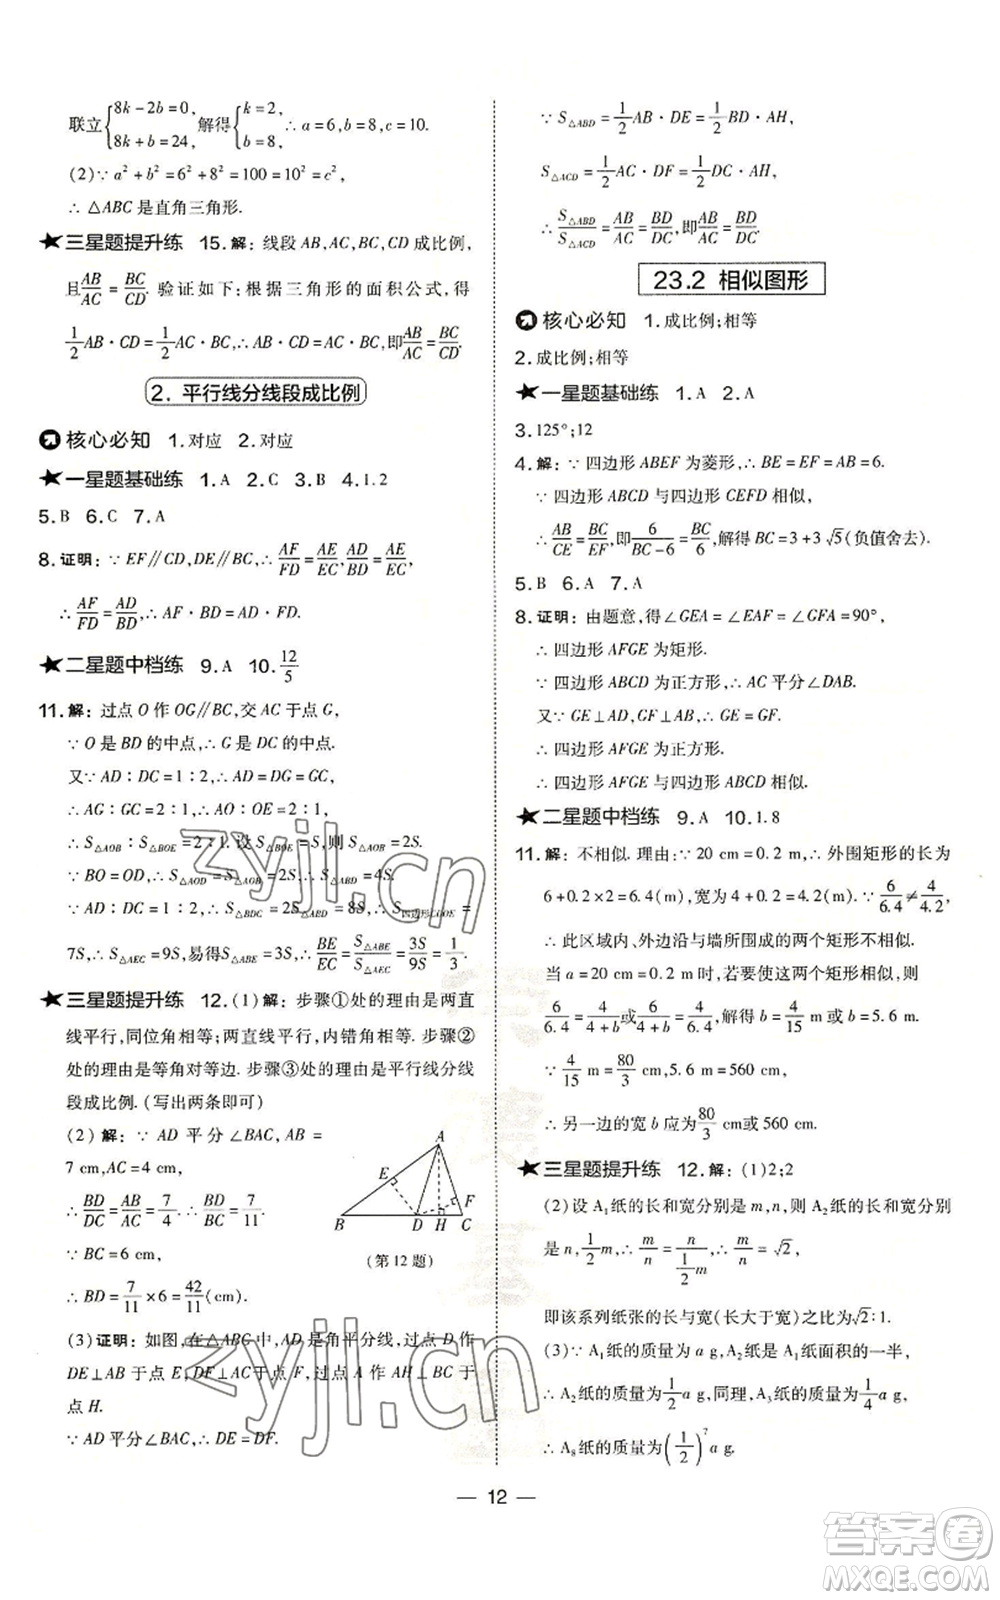 联立{8k-2b=0, 8k+b=24, 解得{k=2, b=8, ∴a=6,b=8,c=10.
(2)∵a²+b²=6²+8²=100=10²=c²,
∴△ABC是直角三角形.
★三星题提升练 15.解:线段AB,AC,BC,CD成比例,
且AB/AC=BC/CD. 验证如下:根据三角形的面积公式,得
1/2AB·CD=1/2AC·BC,∴AB·CD=AC·BC,即AB/AC=BC/CD.
2. 平行线分线段成比例
核心必知 1.对应 2.对应
★一星题基础练 1.A 2.C 3.B 4.1.2
5.B 6.C 7.A
8.证明:∵EF∥CD,DE∥BC,∴AF/FD=AE/EC,AD/BD=AE/EC,
∴AF/FD=AD/BD,∴AF·BD=AD·FD.
★二星题中档练 9.A 10.12/5
11.解:过点O作OG∥BC,交AC于点G,
∵O是BD的中点,∴G是DC的中点.
又∵AD∶DC=1∶2,∴AD=DG=GC,
∴AG∶GC=2∶1,∴AO∶OE=2∶1,
∴S△AOB∶S△BOE=2∶1. 设S△BOE=S,则S△AOB=2S.
∵BO=OD,∴S△AOD=S△AOB=2S,∴S△ABD=4S.
∵AD∶DC=1∶2,∴S△BDC=2S△ABD=8S,∴S四边形CDOE=
7S,∴S△AEC=9S,易得S△ABE=3S,∴BE/EC=S△ABE/S△AEC=3S/9S=1/3.
★三星题提升练 12.(1)解:步骤①处的理由是两直
线平行,同位角相等;两直线平行,内错角相等. 步骤②
处的理由是等角对等边. 步骤③处的理由是平行线分线
段成比例.(写出两条即可)
(2)解:∵AD平分∠BAC,AB=
7 cm,AC=4 cm,
∴BD/DC=AB/AC=7/4. ∴BD/BC=7/11.
∵BC=6 cm,
∴BD=7/11×6=42/11(cm).
A
E
F
B
D
H
C
(第12题)
(3)证明:如图,在△ABC中,AD是角平分线,过点D作
DE⊥AB于点E,DF⊥AC于点F,过点A作AH⊥BC于
点H.
∵AD平分∠BAC,∴DE=DF.
∵S△ABD=1/2AB·DE=1/2BD·AH,
S△ACD=1/2AC·DF=1/2DC·AH,
∴S△ABD/S△ACD=AB/AC=BD/DC,即AB/AC=BD/DC.
23.2 相似图形
核心必知 1.成比例;相等
2.成比例;相等
★一星题基础练 1.A 2.A
3.125°;12
4.解:∵四边形ABEF为菱形,∴BE=EF=AB=6.
∵四边形ABCD与四边形CEFD相似,
∴AB/CE=BC/EF,即6/(BC-6)=BC/6,解得BC=3+3√5(负值舍去).
5.B 6.A 7.A
8.证明:由题意,得∠GEA=∠EAF=∠GFA=90°,
∴四边形AFGE为矩形.
∵四边形ABCD为正方形,∴AC平分∠DAB.
又∵GE⊥AD,GF⊥AB,∴GE=GF.
∴四边形AFGE为正方形.
∴四边形AFGE与四边形ABCD相似.
★二星题中档练 9.A 10.1.8
11.解:不相似. 理由:∵20 cm=0.2 m,∴外围矩形的长为
6+0.2×2=6.4(m),宽为4+0.2=4.2(m). ∵6/6.4≠4/4.2,
∴此区域内、外边沿与墙所围成的两个矩形不相似.
当a=20 cm=0.2 m时,若要使这两个矩形相似,则
6/6.4=4/(4+b)或6/(4+b)=4/6.4,解得b=4/15 m或b=5.6 m.
∵4/15 m=80/3 cm,5.6 m=560 cm,
∴另一边的宽b应为80/3 cm或560 cm.
★三星题提升练 12.解:(1)2;2
(2)设A₁纸的长和宽分别是m,n,则A₂纸的长和宽分别
是n,1/2m,∴m/n=n/(1/2m),∴m/n=√2,
即该系列纸张的长与宽(长大于宽)之比为√2∶1.
(3)∵A₁纸的质量为a g,A₂纸是A₁纸面积的一半,
∴A₂纸的质量为1/2a g,同理,A₃纸的质量为1/4a g,
∴A₈纸的质量为(1/2)⁷a g.
— 12 —
zyjl.cn
zyjl.cn
答案圈
MXQE.COM